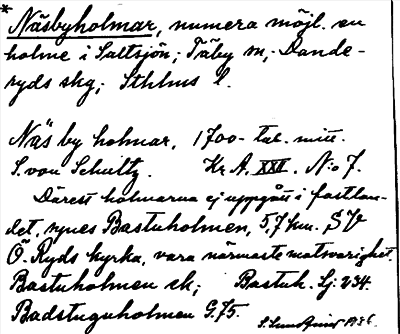 * Näsbyholmar, numera möjl. en
holme i Saltsjön; Täby sn; Dande-
ryds skg; Sthlms l.
Näs by holmar, 1700-tal. mitt.
S. von Schultz. Kr. A. XXII. N:o 7.
Därest holmarna ej uppgått i fastlan-
det, synes Bastuholmen, 5,7 km. SV
Ö. Ryds kyrka, vara närmaste motsvarighet.
Bastuholmen ek; Bastuh. Lj: 234.
Badstuguholmen G. 75.
1936.